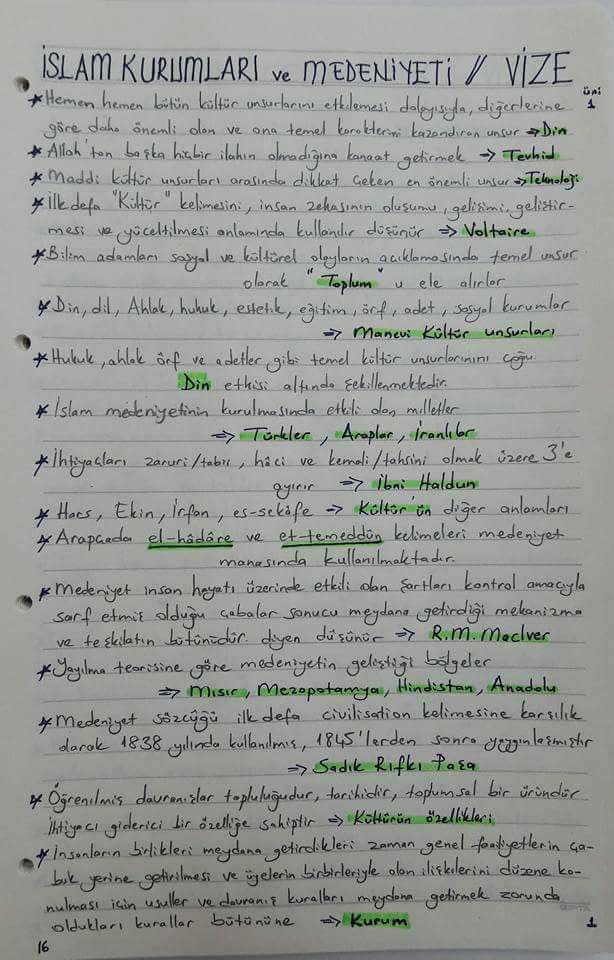 İSLAM KURUMLARI ve MEDENİYETİ // VİZE
üni 1
* Hemen hemen bütün kültür unsurlarını etkilemesi dolayısıyla, diğerlerine
göre daha önemli olan ve ana temel karakterini kazandıran unsur ⇒ Din
* Allah'tan başka hiçbir ilahın olmadığına kanaat getirmek ⇒ Tevhid
* Maddi kültür unsurları arasında dikkat çeken en önemli unsur ⇒ Teknoloji
* İlk defa "Kültür" kelimesini, insan zekasının oluşumu, gelişimi, geliştir-
mesi ve yüceltilmesi anlamında kullanılır düşünür ⇒ Voltaire
* Bilim adamları sosyal ve kültürel olayların açıklamasında temel unsur
olarak "Toplum" u ele alırlar
* Din, dil, Ahlak, hukuk, estetik, eğitim, örf, adet, sosyal kurumlar
⇒ Manevi Kültür unsurları
* Hukuk, ahlak örf ve adetler gibi temel kültür unsurlarınını çoğu
Din etkisi altında şekillenmektedir.
* İslam medeniyetinin kurulmasında etkili olan milletler
⇒ Türkler, Araplar, İranlılar
* İhtiyaçları zaruri/tabii, hâci ve kemali/tahsini olmak üzere 3'e
ayırır ⇒ İbni Haldun
* Hars, Ekin, İrfan, es-sekâfe ⇒ Kültür'ün diğer anlamları
* Arapçada el-hâdâre ve et-temeddün kelimeleri medeniyet
manasında kullanılmaktadır.
* Medeniyet insan hayatı üzerinde etkili olan şartları kontrol amacıyla
sarf etmiş olduğu çabalar sonucu meydana getirdiği mekanizma
ve teşkilatın bütünüdür diyen düşünür ⇒ R.M. MacIver
* Yayılma teorisine göre medeniyetin geliştiği bölgeler
⇒ Mısır, Mezopotamya, Hindistan, Anadolu
* Medeniyet sözcüğü ilk defa civilisation kelimesine karşılık
olarak 1838 yılında kullanılmış, 1845'lerden sonra yaygınlaşmıştır
⇒ Sadık Rıfkı Paşa
* Öğrenilmiş davranışlar topluluğudur, tarihidir, toplumsal bir üründür
İhtiyacı giderici bir özelliğe sahiptir ⇒ Kültürün özellikleri
* İnsanların birlikleri meydana getirdikleri zaman genel faaliyetlerin ça-
buk yerine getirilmesi ve üyelerin birbirleriyle olan ilişkilerini düzene ko-
nulması için usuller ve davranış kuralları meydana getirmek zorunda
oldukları kurallar bütününe ⇒ Kurum
1
16